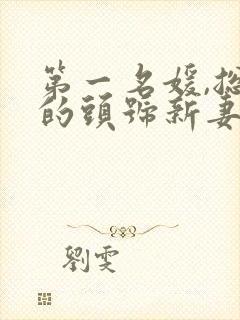 第一名媛,總
的頭號新妻
劉雯